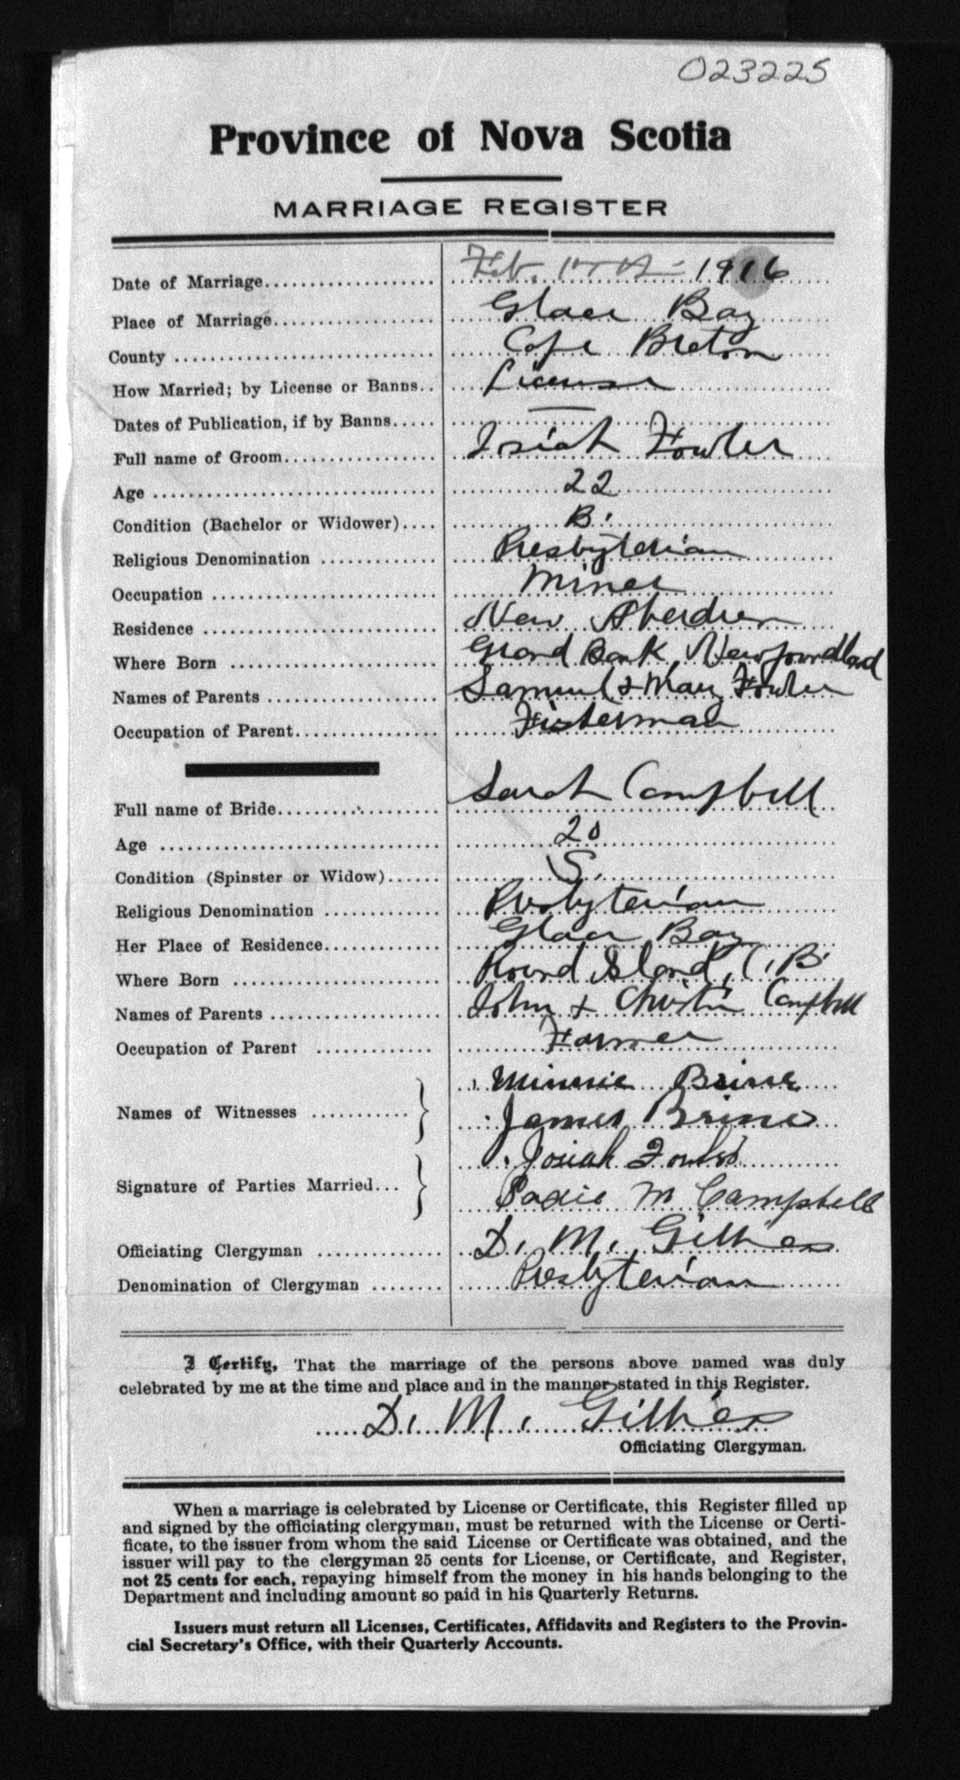 023225
Province of Nova Scotia
MARRIAGE REGISTER
Date of Marriage.................... Feb. 17th 1916
Place of Marriage................... Glace Bay
County ............................. Cape Breton
How Married; by License or Banns.. License
Dates of Publication, if by Banns..... —
Full name of Groom.................. Josiah Fowler
Age ................................ 22
Condition (Bachelor or Widower).... B.
Religious Denomination ............. Presbyterian
Occupation ......................... Miner
Residence .......................... New Aberdeen
Where Born ......................... Grand Bank, Newfoundland
Names of Parents ................... Samuel & Mary Fowler
Occupation of Parent................ Fisherman
Full name of Bride.................. Sarah Campbell
Age ................................ 20
Condition (Spinster or Widow)...... S.
Religious Denomination ............. Presbyterian
Her Place of Residence.............. Glace Bay
Where Born ......................... Round Island, C.B.
Names of Parents ................... John & Christie Campbell
Occupation of Parent ............... Farmer
Names of Witnesses ........... } Minnie Brine
James Brine
Signature of Parties Married... } Josiah Fowler
Sadie M Campbell
Officiating Clergyman .............. D. M. Gillies
Denomination of Clergyman ........ Presbyterian
I Certify, That the marriage of the persons above named was duly
celebrated by me at the time and place and in the manner stated in this Register.
D. M. Gillies
Officiating Clergyman.
When a marriage is celebrated by License or Certificate, this Register filled up
and signed by the officiating clergyman, must be returned with the License or Certi-
ficate, to the issuer from whom the said License or Certificate was obtained, and the
issuer will pay to the clergyman 25 cents for License, or Certificate, and Register,
not 25 cents for each, repaying himself from the money in his hands belonging to the
Department and including amount so paid in his Quarterly Returns.
Issuers must return all Licenses, Certificates, Affidavits and Registers to the Provin-
cial Secretary's Office, with their Quarterly Accounts.